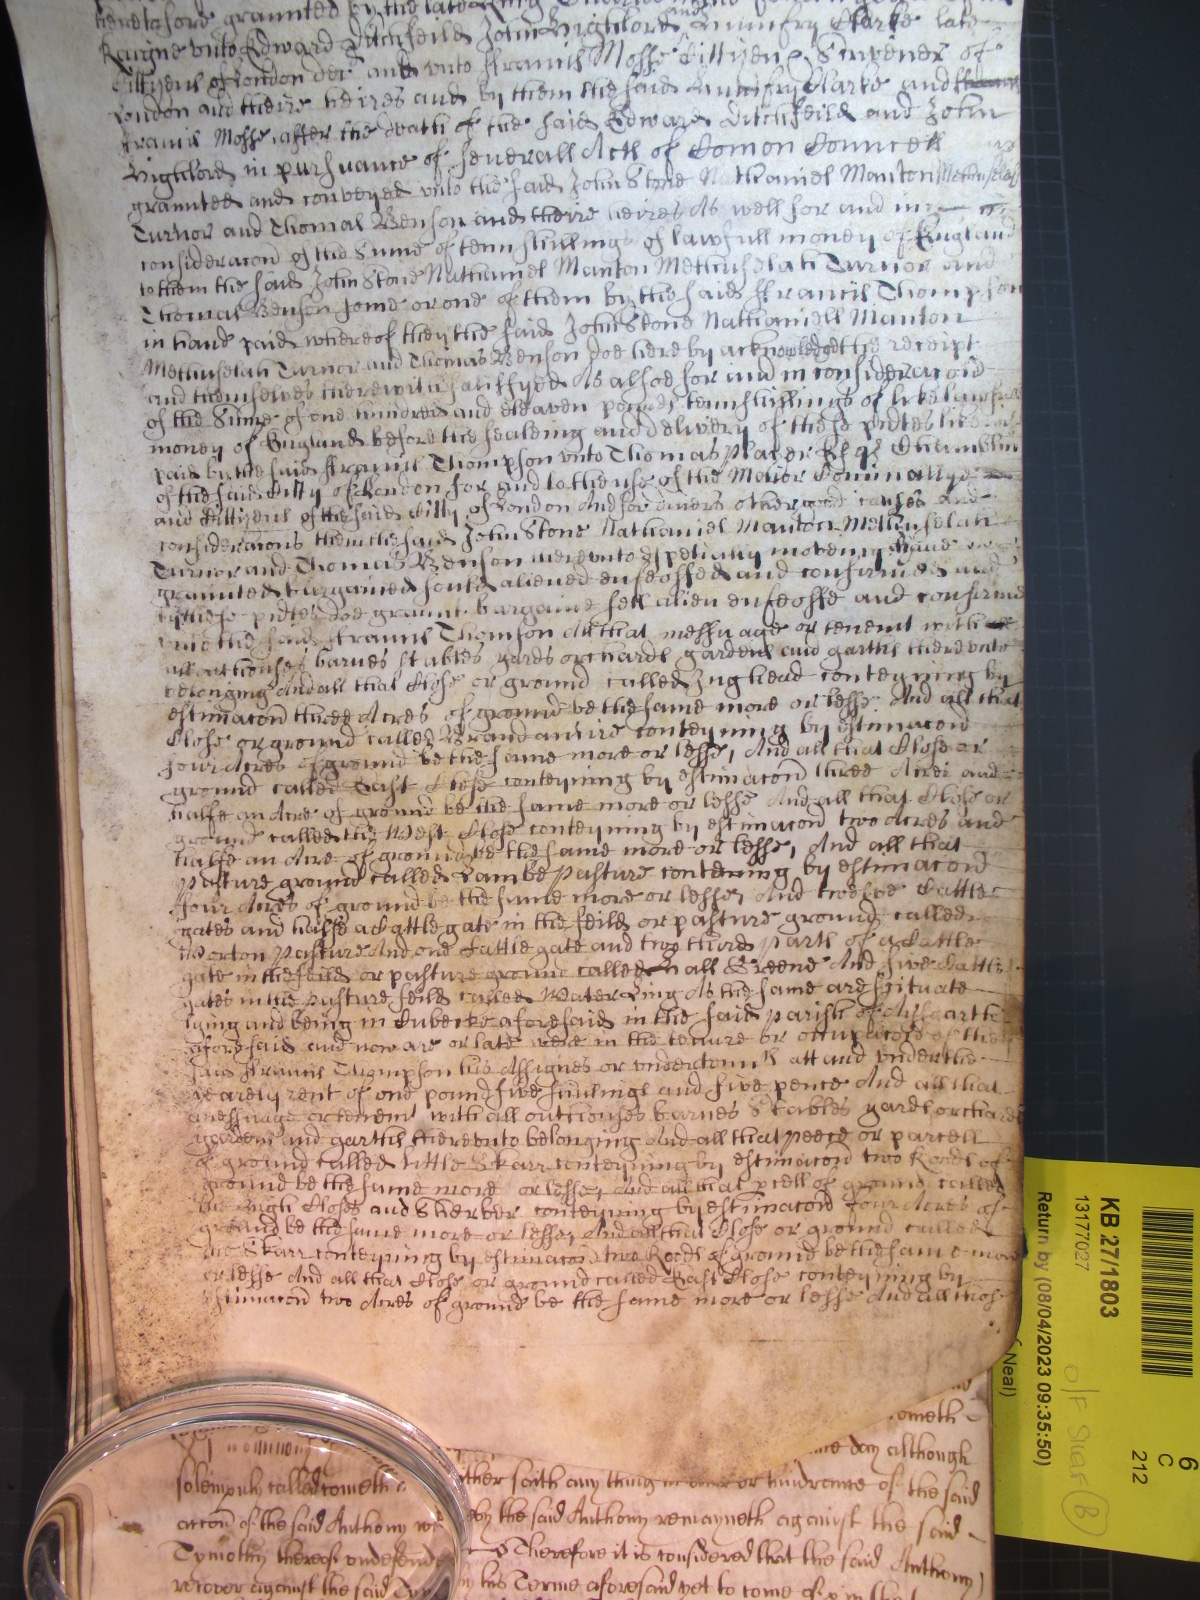 heretofore graunted by the late King
Raigne unto Edward Ditchfeild John Highlord Humfry Clarke late
Cittizens of London decd and unto Francis Mosse Cittizen & Scrivener of
London and theire heires and by them the said Humfry Clarke and
Francis Mosse after the death of the said Edward Ditchfeild and John
Highlord in pursuance of severall Acts of Comon Councell
graunted and conveyed unto the said John Stone Nathaniel Manton Methuselah
Turnor and Thomas Benson and theire heires As well for and in
consideracon of the Sume of tenn shillings of lawfull money of England
to them the said John Stone Nathaniel Manton Methuselah Turnor and
Thomas Benson some or one of them by the said Francis Thompson
in hand paid whereof they the said John Stone Nathaniell Manton
Methuselah Turnor and Thomas Benson doe hereby acknowledge the receipt
and themselves therewith satisfyed As alsoe for and in consideracon
of the Sume of one hundred and eleaven pounds tenn shillings of like lawfull
money of England before the sealeing and delivery of these pntes
paid by the said Francis Thompson unto Thomas Player Esqr Chamberlin
of the said Citty of London for and to the use of the Maior Cominallty
and Cittizens of the said Citty of London And for divers other good causes and
consideracons them the said John Stone Nathaniel Manton Methuselah
Turnor and Thomas Benson hereunto especially moveing Have
graunted bargained sould aliened enfeoffed and confirmed and
by these pntes doe graunt bargaine sell alien enfeoffe and confirme
unto the said Francis Thomson All that messuage or tenemt with
all outhouses barnes stables yards orchards gardens and garths thereunto
belonging And all that Close or ground called Inghead conteyning by
estimacon three Acres of ground be the same more or lesse And all that
Close or ground called conteyning by estimacon
four Acres of ground be the same more or lesse, And all that Close or
ground called East Close conteyning by estimacon three Acres and
halfe an Acre of ground be the same more or lesse And all that Close or
ground called the West Close conteyning by estimacon two Acres and
halfe an Acre of ground be the same more or lesse, And all that
pasture ground called Lambe pasture contening by estimacon
four Acres of ground be the same more or lesse, And twelve Cattle
gates and halfe a Cattle gate in the feild or pasture ground called
Worton pasture And one Cattle gate and two third parts of a Cattle
gate in the feild or pasture ground called Hall Greene And five Cattle
gates in the pasture feild called Water Ling As the same are scituate
lying and being in Cubecke aforesaid in the said parish of Aisgarth
aforesaid and now are or late were in the tenure or occupacon of the
said Francis Thompson his Assignes or undertennts att and under the
yearely rent of one pound five shillings and five pence And all that
messuage or tenemt with all outhouses barnes Stables yards orchards
gardens and garths thereunto belonging And all that peece or parcell
of ground called little Skarr conteyning by estimacon two Roods of
ground be the same more or lesse, And all that pcell of ground called
the High Closes and Skerber conteyning by estimacon four Acres of
ground be the same more or lesse, And all that Close or ground called
the Skarr conteyning by estimacon two Roods of ground be the same more
or lesse And all that Close or ground called East Close conteyning by
estimacon two Acres of ground be the same more or lesse And all those
cometh
me day although
solemply called cometh ther saith any thing in or hindrance of the said
accon of the said Anthony by the said Anthony remayneth against the said
Tymothy thereof undefended Therefore it is considered that the said Anthony
recover against the said his Terme aforesaid yet to come of
KB 27/1803
13177027
Return by (08/04/2023 09:35:50)
Neal)
6
C
212
O/F Staff (B)